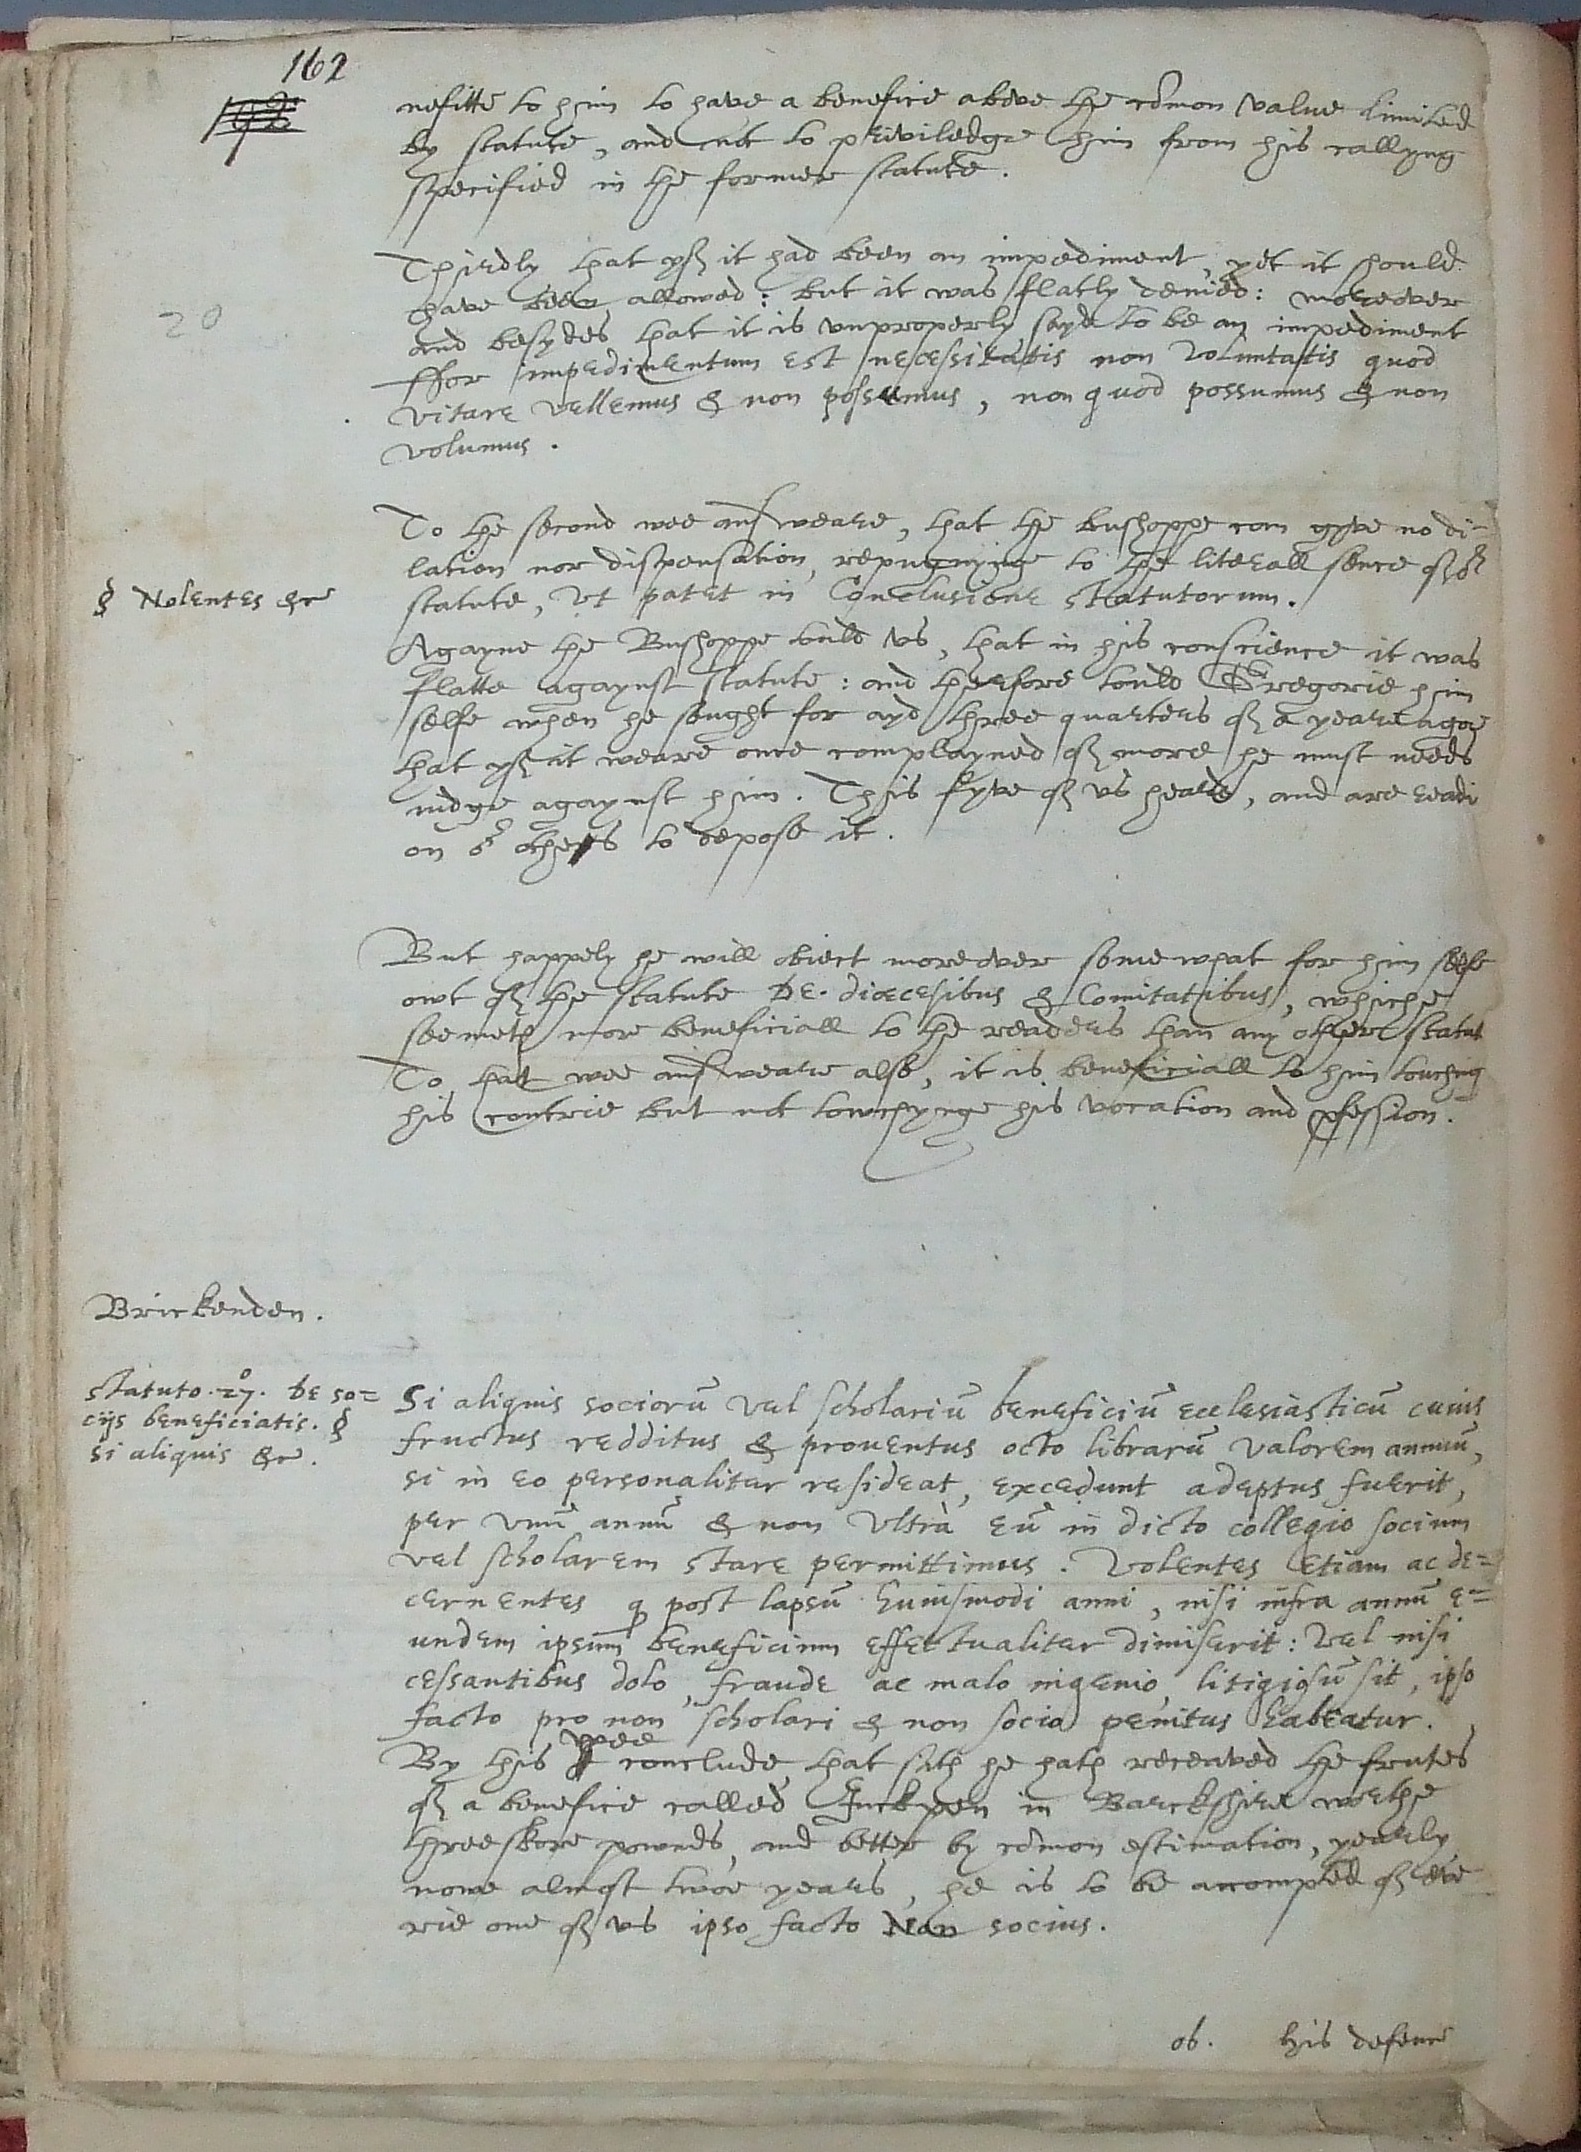 162
nefitte to him to have a benefice above the cōmon value limited
by statute, and not to priviledge him from his callyng
specified in the former statute.
Thirdly that yf it had been an impediment, yet it should
20
have been allowed: but it was flatly denied: moreover
and besydes that it is vnproperly sayd to be an impediment
ffor impedimentum est necessitatis non voluntatis quod
vitare vellemus & non possumus, non quod possumus & non
volumus.
To the second wee answeare, that the bushoppe can gyve no di-
lation nor dispensation, repugnynge to the literall sence of yͤ
§ Nolentes &c
statute, vt patet in Conclusione statutorum.
Agayne the Bushoppe tould vs, that in his conscience it was
flatte agaynst statute: and therefore tould Gregorie him
selfe when he sought for ayd three quarters of a yeare agoe
that yf it weare once complayned of more he must needs
iudge agaynst him. This fyve of vs heard, and are readi
on oʳ othes to depose it.
But happely he will obiect moreover somewhat for him selfe
owt of the statute De. diœcesibus & Comitatibus, whiche
seemeth more beneficiall to the readers than any other statut
To that wee answeare also, it is beneficiall to him touching
his contrie but not towchynge his vocation and pfession.
Brickenden.
statuto. 27.° De so=
ciis beneficiatis. §
si aliquis &c.
Si aliquis sociorū vel scholariū beneficiū ecclesiasticū cuius
fructus redditus & prouentus octo librarū valorem annuū,
si in eo personaliter resideat, excedunt adeptus fuerit,
per vnū annū & non vltrà eū in dicto collegio socium
vel scholarem stare permittimus. Volentes etiam ac de=
cernentes q post lapsū huiusmodi anni, nisi infra annū e=
undem ipsum beneficium effectualiter dimiserit: vel nisi
cessantibus dolo, fraude ac malo ingenio, litigiosū sit, ipso
facto pro non scholari & non socio penitus habeatur.
By this wee conclude, that sith he hath receaved the frutes
of a benefice called Inckpen in Barckshire worthe
threeskore pownds, and better by cōmon estimation, yearly
nowe almost twoe years, he is to be accompted of eve
rie one of vs ipso facto Non socius.
ob. his defence